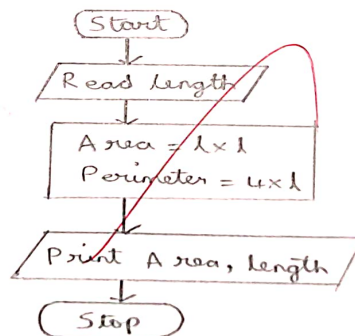 Start
Read length
Area = l×l
Perimeter = 4×l
Print Area, length
Stop